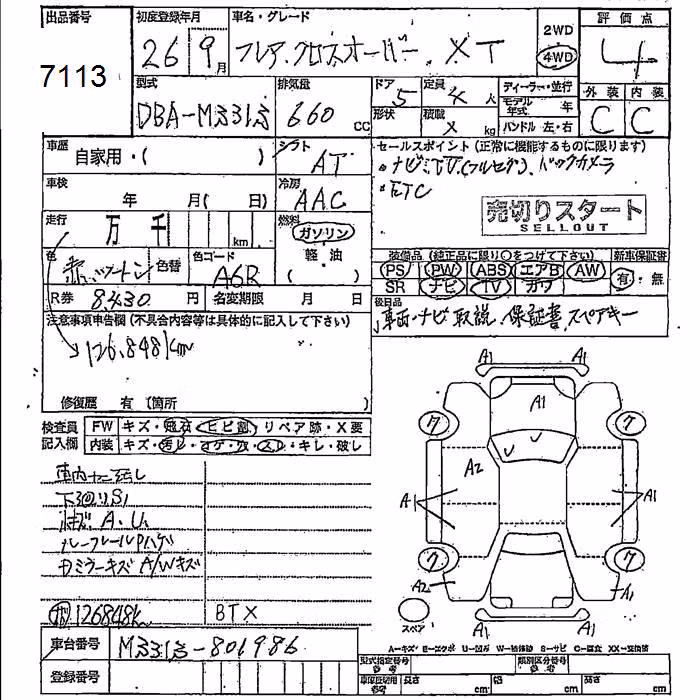 出品番号 初度登録年月 車名・グレード 評価点
7113 26年9月 フレア クロスオーバー XT 2WD 4WD 4
型式 排気量 ドア 定員 ディーラー・並行 外装 内装
DBA-MS31S 660 CC 5 4 人 モデル年式 年 C C
形状 積載 X kg ハンドル 左・右
車歴 シフト セールスポイント (正常に機能するものに限ります)
自家用・( ) AT ・ナビ・TV(フルセグ)、バックカメラ
車検 冷房 ・ETC
年 月( 日) AAC 売切りスタート
SELLOUT
走行 燃料
万 千 km ガソリン
軽・油
( )
装備品 (純正品に限り○をつけて下さい) 新車保証書
色 色替 色コード PS PW ABS エアB AW 有・無
赤ツートン A6R SR ナビ TV カワ
R券 8430 円 名変期限 月 日 後日品
車両・ナビ取説、保証書、スペアキー
注意事項申告欄 (不具合内容等は具体的に記入して下さい)
126,848km
修復歴 有 (箇所 )
検査員 FW キズ・飛石・ヒビ割・リペア跡・X要
記入欄 内装 キズ・汚れ・コゲ・穴・スレ・キレ・破し
下廻りS1
A、U、
ルーフレールPハゲ
ドミラーキズ A/Wキズ
126848k BTX
車台番号 MS31S-801986
登録番号
A1 A1
A1
ワ ワ
A2
A1 A1
ワ ワ
A2 A1
スペア A1 A1
A=キズ E=エクボ U=凹ミ W=補修跡 S=サビ C=腐食 XX=交換済
型式指定番号 類別区分番号
参考 参考
車庫証明用 長さ 幅 高さ
参考 cm cm cm